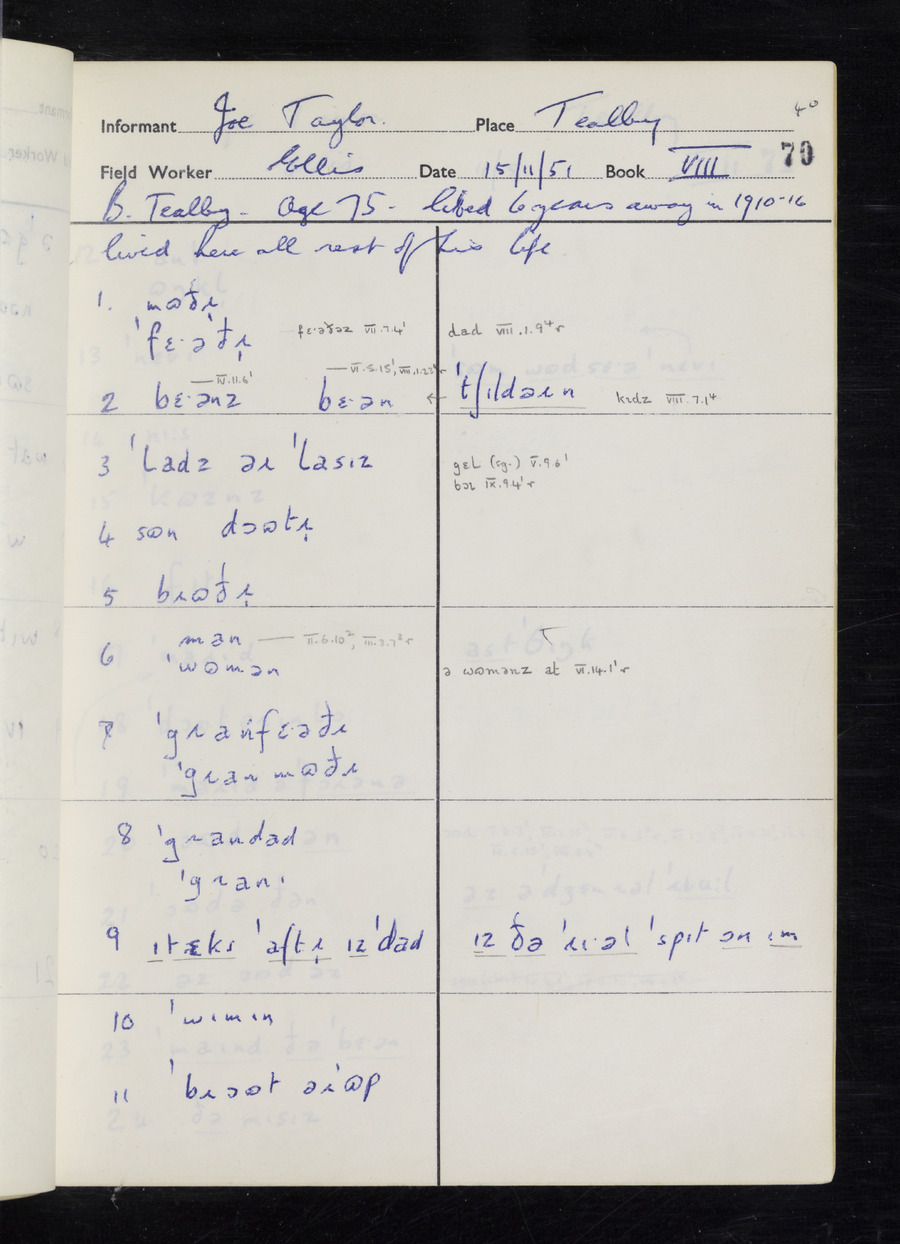 40
Informant Joe Taylor. Place Tealby
70
Field Worker Ellis Date 15/11/51 Book VIII
B. Tealby - Age 75 - lived 6 years away in 1910-16
lived here all rest of his life.
1. mʊðɹ̩
ˈfɛ·əðɹ̩ fɛ·əðəz VII.7.4¹ dad VIII.1.9⁴r
IV.11.6¹ VI.5.15¹, VIII.1.23
2 bɛ·ənz bɛ·ən ← ˈtʃɪldəɹn kɪdz VIII.7.1⁴
3 ˈladz əɹ ˈlasɪz gɛl (sg.) V.9.6¹
bɔɪ IX.9.4¹r
4 sʊn dɔʊtɹ̩
5 bɹʊðɹ̩
6 man II.6.10², III.3.7²r
ˈwʊmən ə wʊmənz at VI.14.1¹r
7 ˈgɹanfɛ·əðɹ
ˈgɹanmʊðɹ
8 ˈgɹandad
ˈgɹani
9 ɪt ɛks ˈaftɹ̩ ɪz ˈdad ɪz ðə ˈɹɪ·əl ˈspɪt ən ɪm
10 ˈwɪmɪn
11 ˈbɹɔʊt əɹ ˈʊp